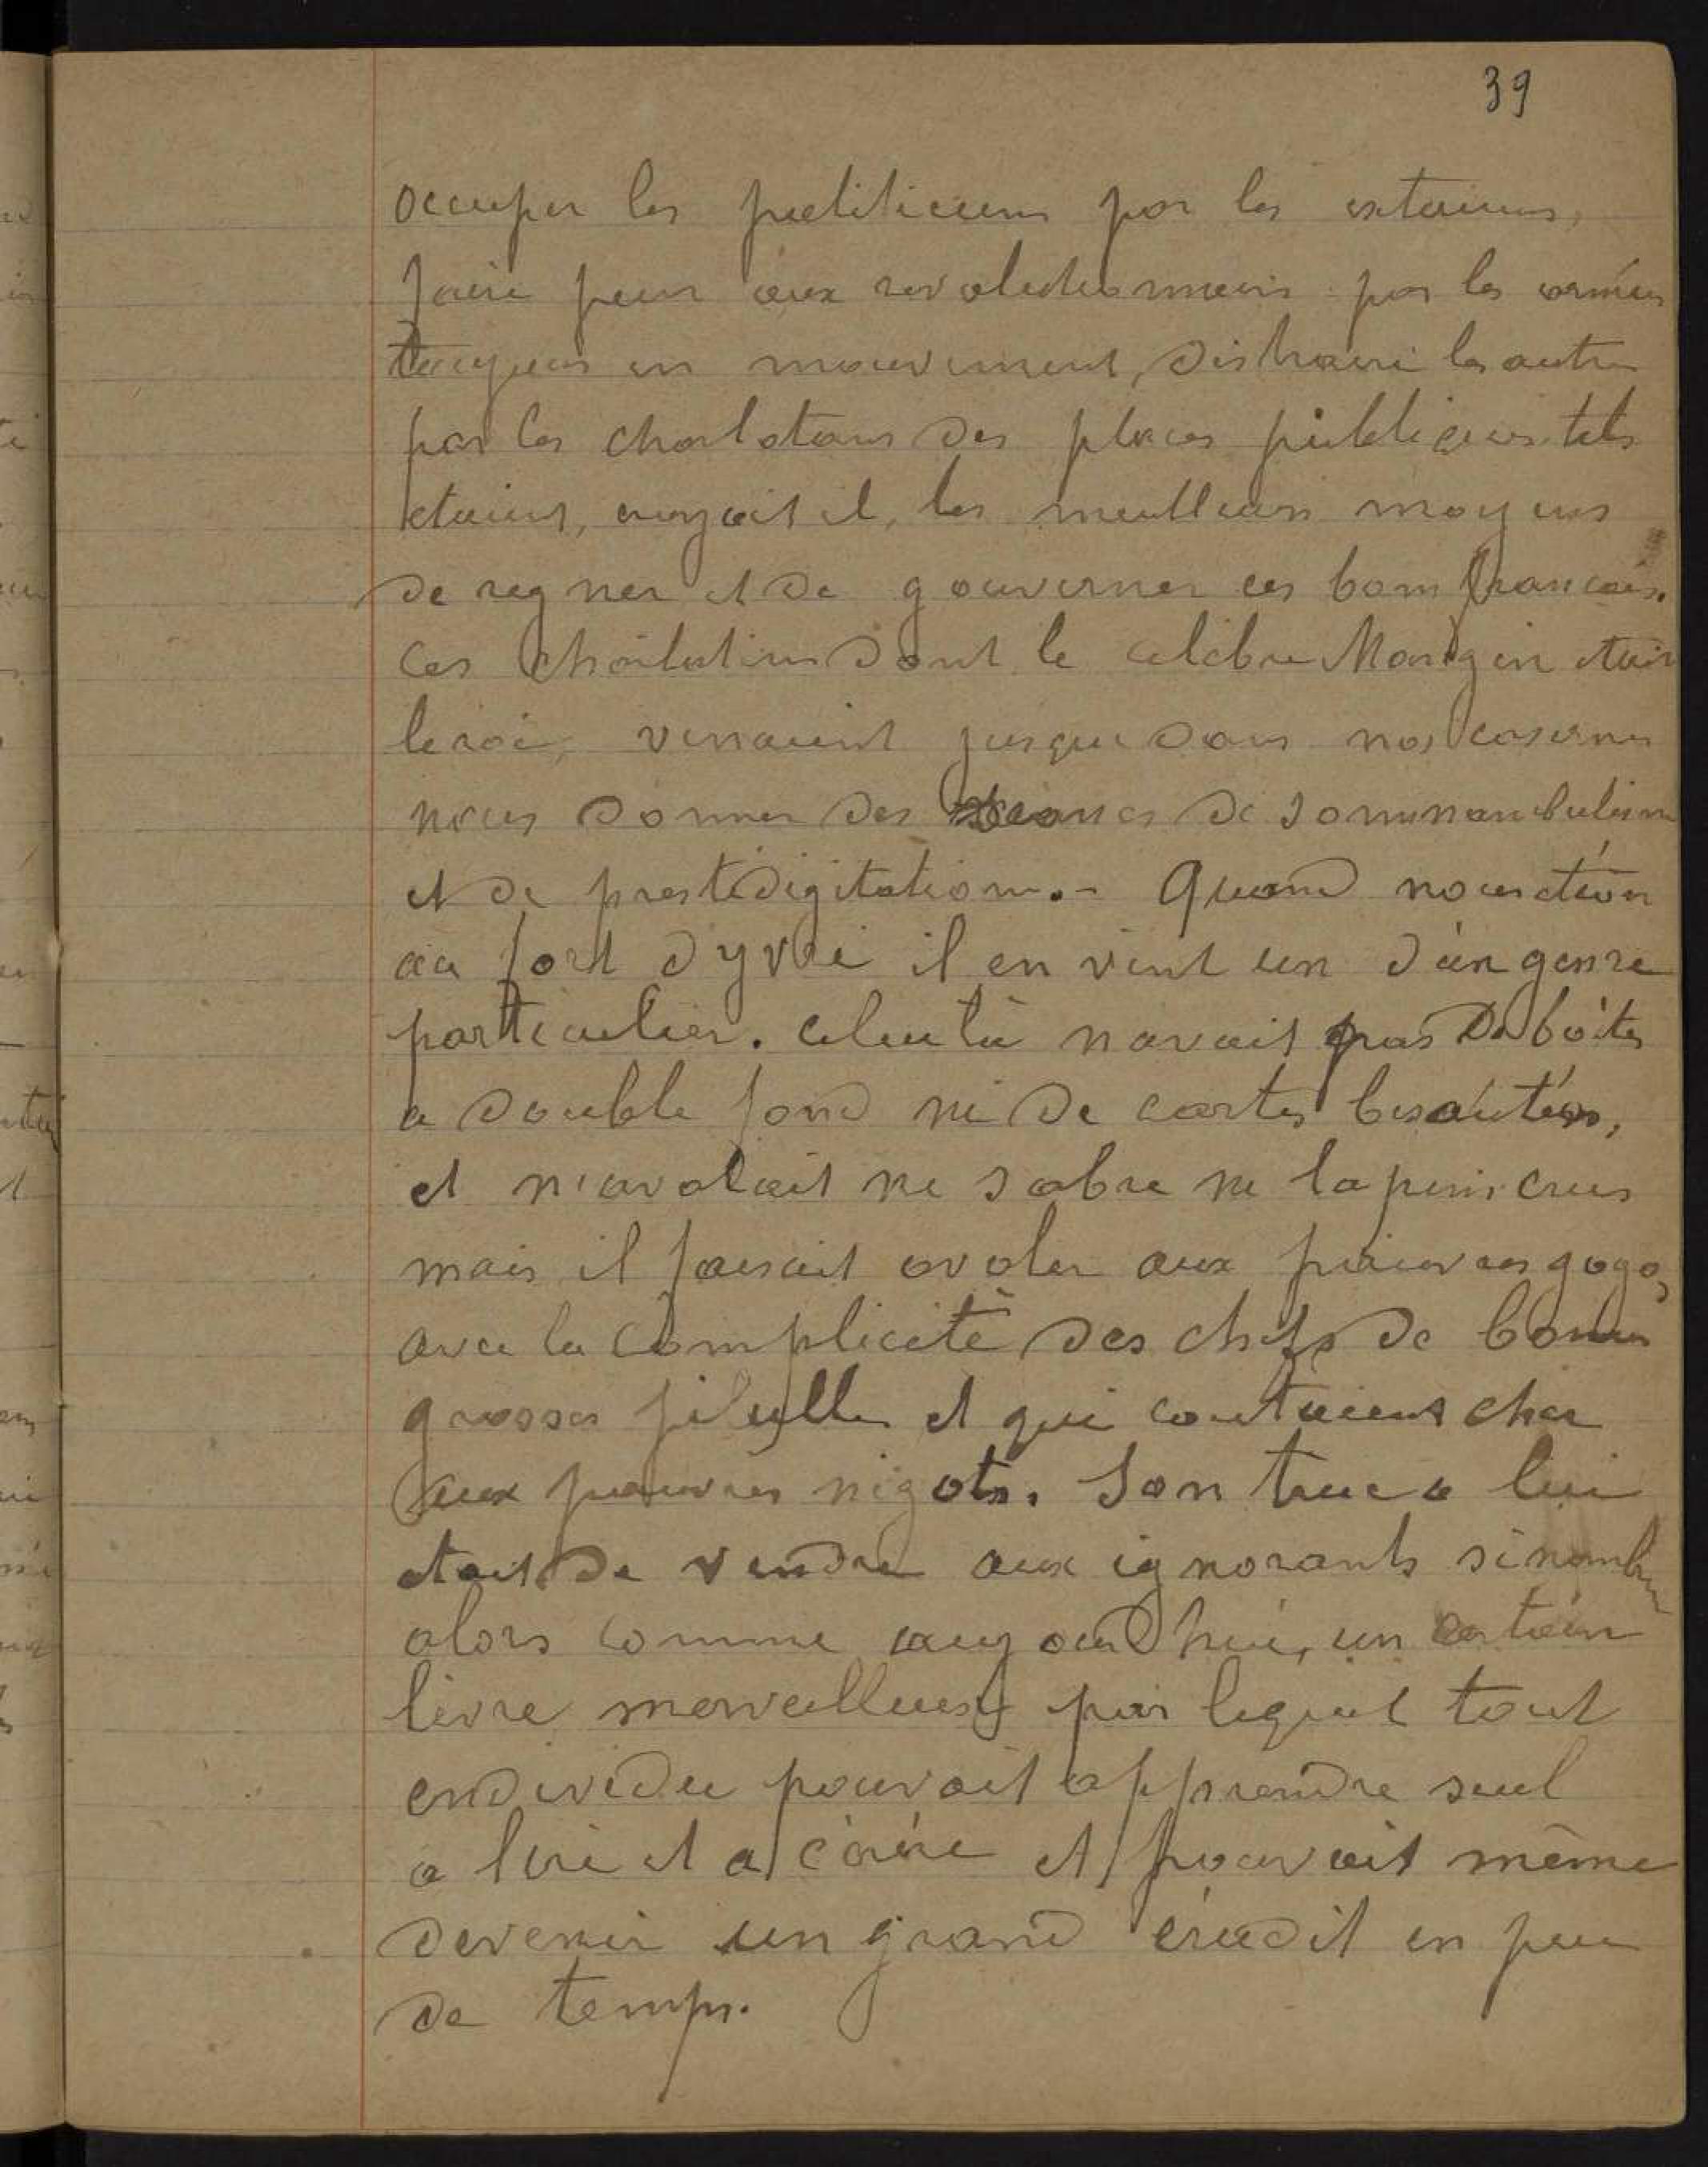 39
occuper les politiciens par les exterieurs,
faire peur aux revolutionnairs par les armées
toujours en mouvement, distraire les autres
par les charlatans des places publiques. tels
etaient, croyait il, les meilleurs moyens
de regner et de gouverner ces bons francais.
Ces charlatans dont le celebre Mangin etait
le roi, venaient jusque dans nos casernes
nous donner des séances de somnanbulisme
et de prestidigitation. - Quand nous étions
au fort d'yvri il en vint un d'un genre
particulier. celui là navait pas de boîtes
a double fond ni de cartes biseautées,
et n'avalait ni sabre ni lapins crus
mais il faisait avaler aux pauvres gogos,
avec la complicité des chefs de bonnes
grosses pilulles et qui coutaient cher
aux pauvres nigots. Son truc a lui
etait de vendre aux ignorants si nombreux
alors comme aujourdhui, un certain
livre merveilleux par lequel tout
individu pouvait apprendre seul
a lire et a écrire et pouvait même
devenir un grand érudit en peu
de temps.